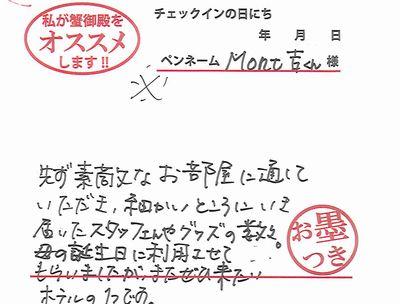 私が蟹御殿を
オススメ
します!!
チェックインの日にち
年 月 日
ペンネーム Mont吉くん 様
※
先ず素敵な お部屋に通して
いただき、細かい ところに いき
届いたスタッフさんやグッズの数々
母の誕生日に利用させて
もらいましたが、またぜひ来たい
ホテルの1つです。
お墨つき